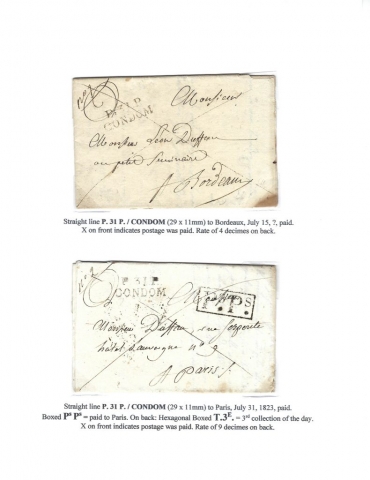 P.31.P
CONDOM
Monsieur
Monsieur Léon Duffau
au petit Seminaire
A Bordeaux
Straight line P. 31 P. / CONDOM (29 x 11mm) to Bordeaux, July 15, ?, paid.
X on front indicates postage was paid. Rate of 4 decimes on back.
P.31.P
CONDOM
A Monsieur
P.PS
Monsieur Duffau, rue
hôtel d'auvergne n° 9
A Paris
Straight line P. 31 P. / CONDOM (29 x 11mm) to Paris, July 31, 1823, paid.
Boxed Pˢ Pˢ = paid to Paris. On back: Hexagonal Boxed T.3ᴱ. = 3ʳᵈ collection of the day.
X on front indicates postage was paid. Rate of 9 decimes on back.